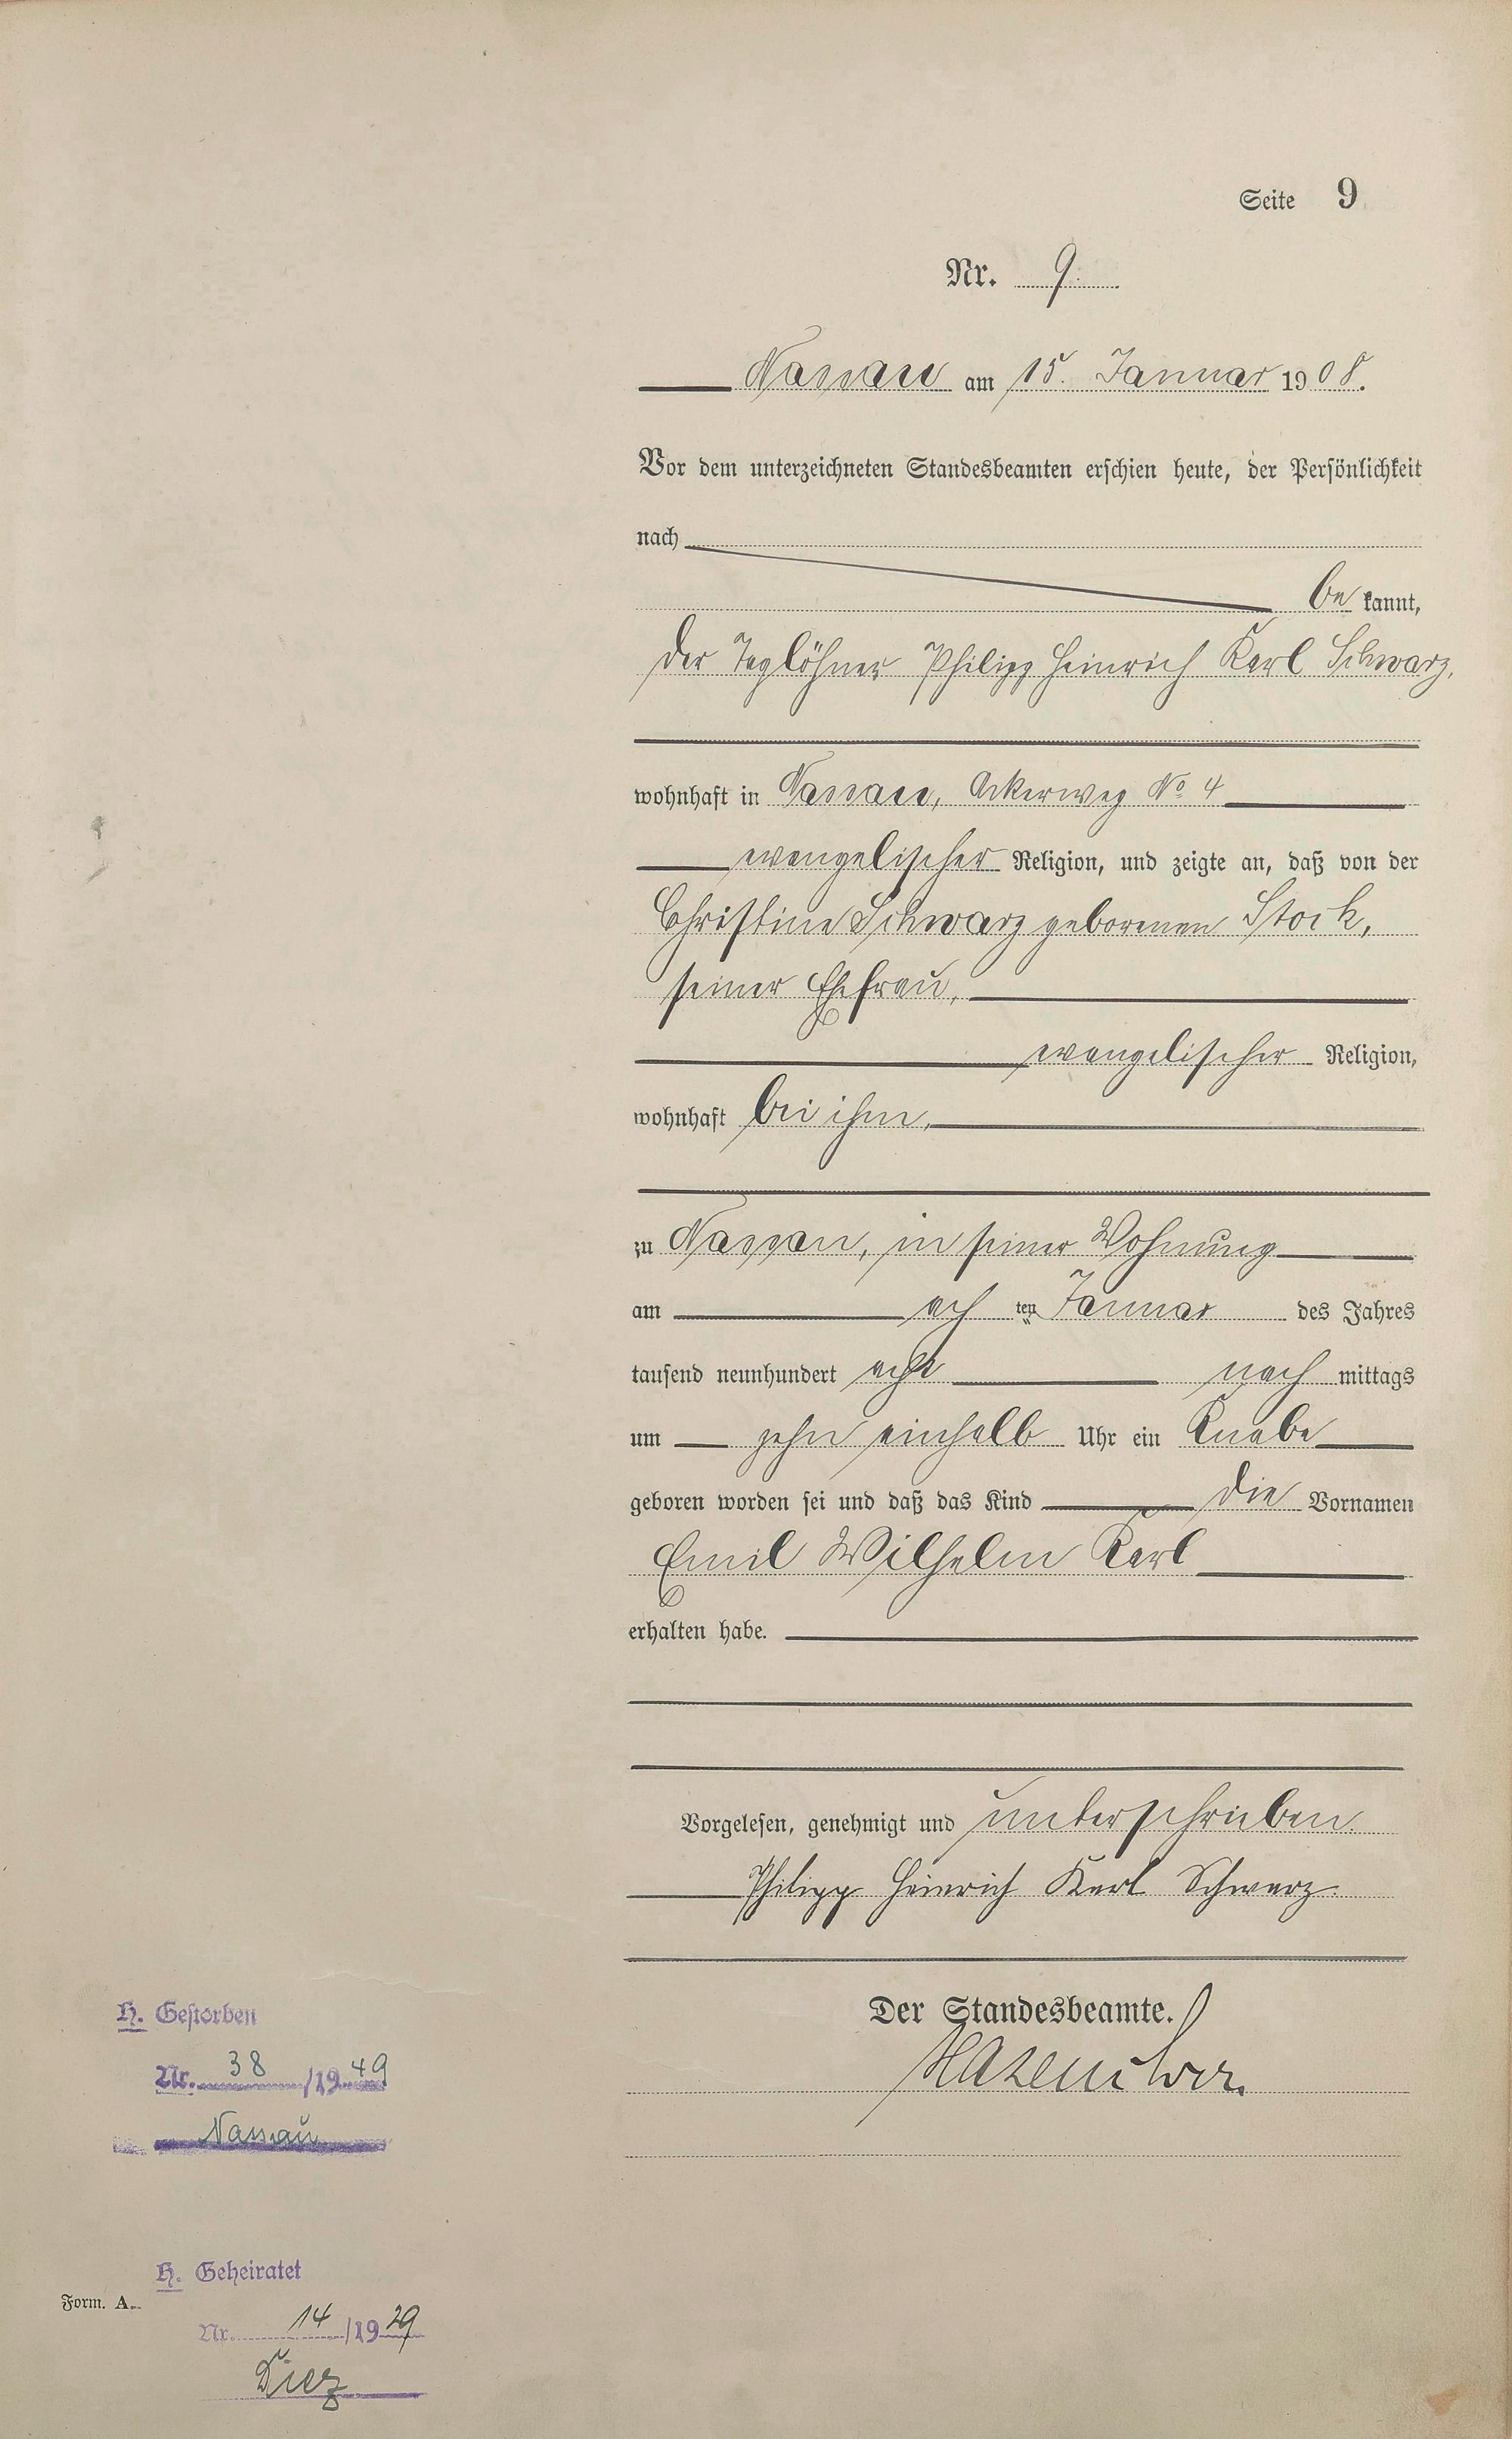 Seite 9
Nr. 9.
Nassau am 15. Januar 1908.
Vor dem unterzeichneten Standesbeamten erschien heute, der Persönlichkeit
nach
be kannt,
der Taglöhner Philipp Heinrich Karl Schwarz,
wohnhaft in Nassau, Ackerweg No 4
evangelischer Religion, und zeigte an, daß von der
Christine Schwarz geborenen Stock,
seiner Ehefrau,
evangelischer Religion,
wohnhaft bei ihm,
zu Nassau, in seiner Wohnung
am ach ten Januar des Jahres
tausend neunhundert acht nach mittags
um zehn einhalb Uhr ein Knabe
geboren worden sei und daß das Kind die Vornamen
Emil Wilhelm Karl
erhalten habe.
Vorgelesen, genehmigt und unterschrieben.
Philipp Heinrich Karl Schwarz.
Der Standesbeamte.
H. Gestorben
Nr. 38 /1949
Nassau
H. Geheiratet
Form. A.
Nr. 14 /1929
Diez